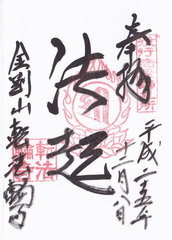 奉拝
平成二五年
十二月八日
法起
金剛山転法輪寺